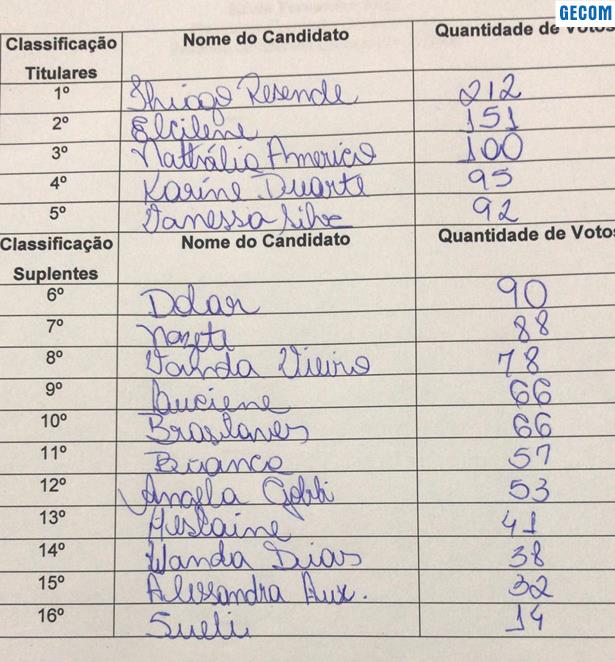 GECOM
Classificação Titulares Nome do Candidato Quantidade de Votos
1º Thiago Resende 212
2º Elcilene 151
3º Nathália Americo 100
4º Karine Duarte 95
5º Vanessa Silva 92
Classificação Suplentes Nome do Candidato Quantidade de Votos
6º 90
7º 88
8º Vanda Vieira 78
9º Luciene 66
10º 66
11º Bianca 57
12º Angela 53
13º 41
14º Wanda Dias 38
15º Alessandra Aux. 32
16º Sueli 14